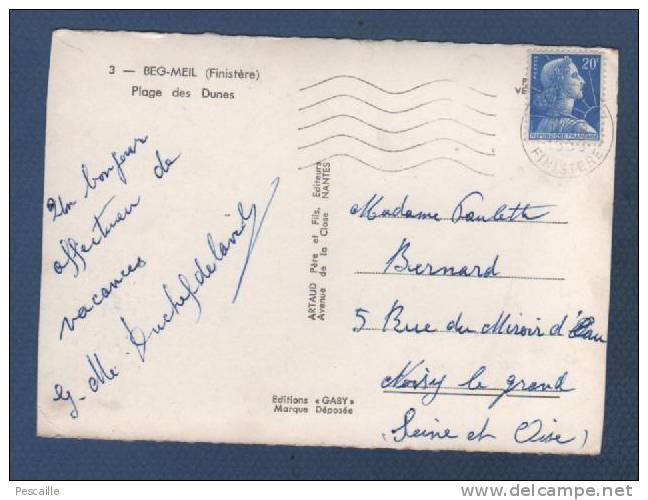 3 — BEG-MEIL (Finistère)
Plage des Dunes
20F
POSTES
REPUBLIQUE FRANÇAISE
FINISTERE
Un bonjour
affectueux de
vacances
ARTAUD Père et Fils, Editeurs
Avenue de la Close NANTES
Editions « GABY »
Marque Déposée
Madame Paulette
Bernard
5 Rue du Miroir d'Eau
Noisy le grand
(Seine et Oise)
Pescaille
www.delcampe.net